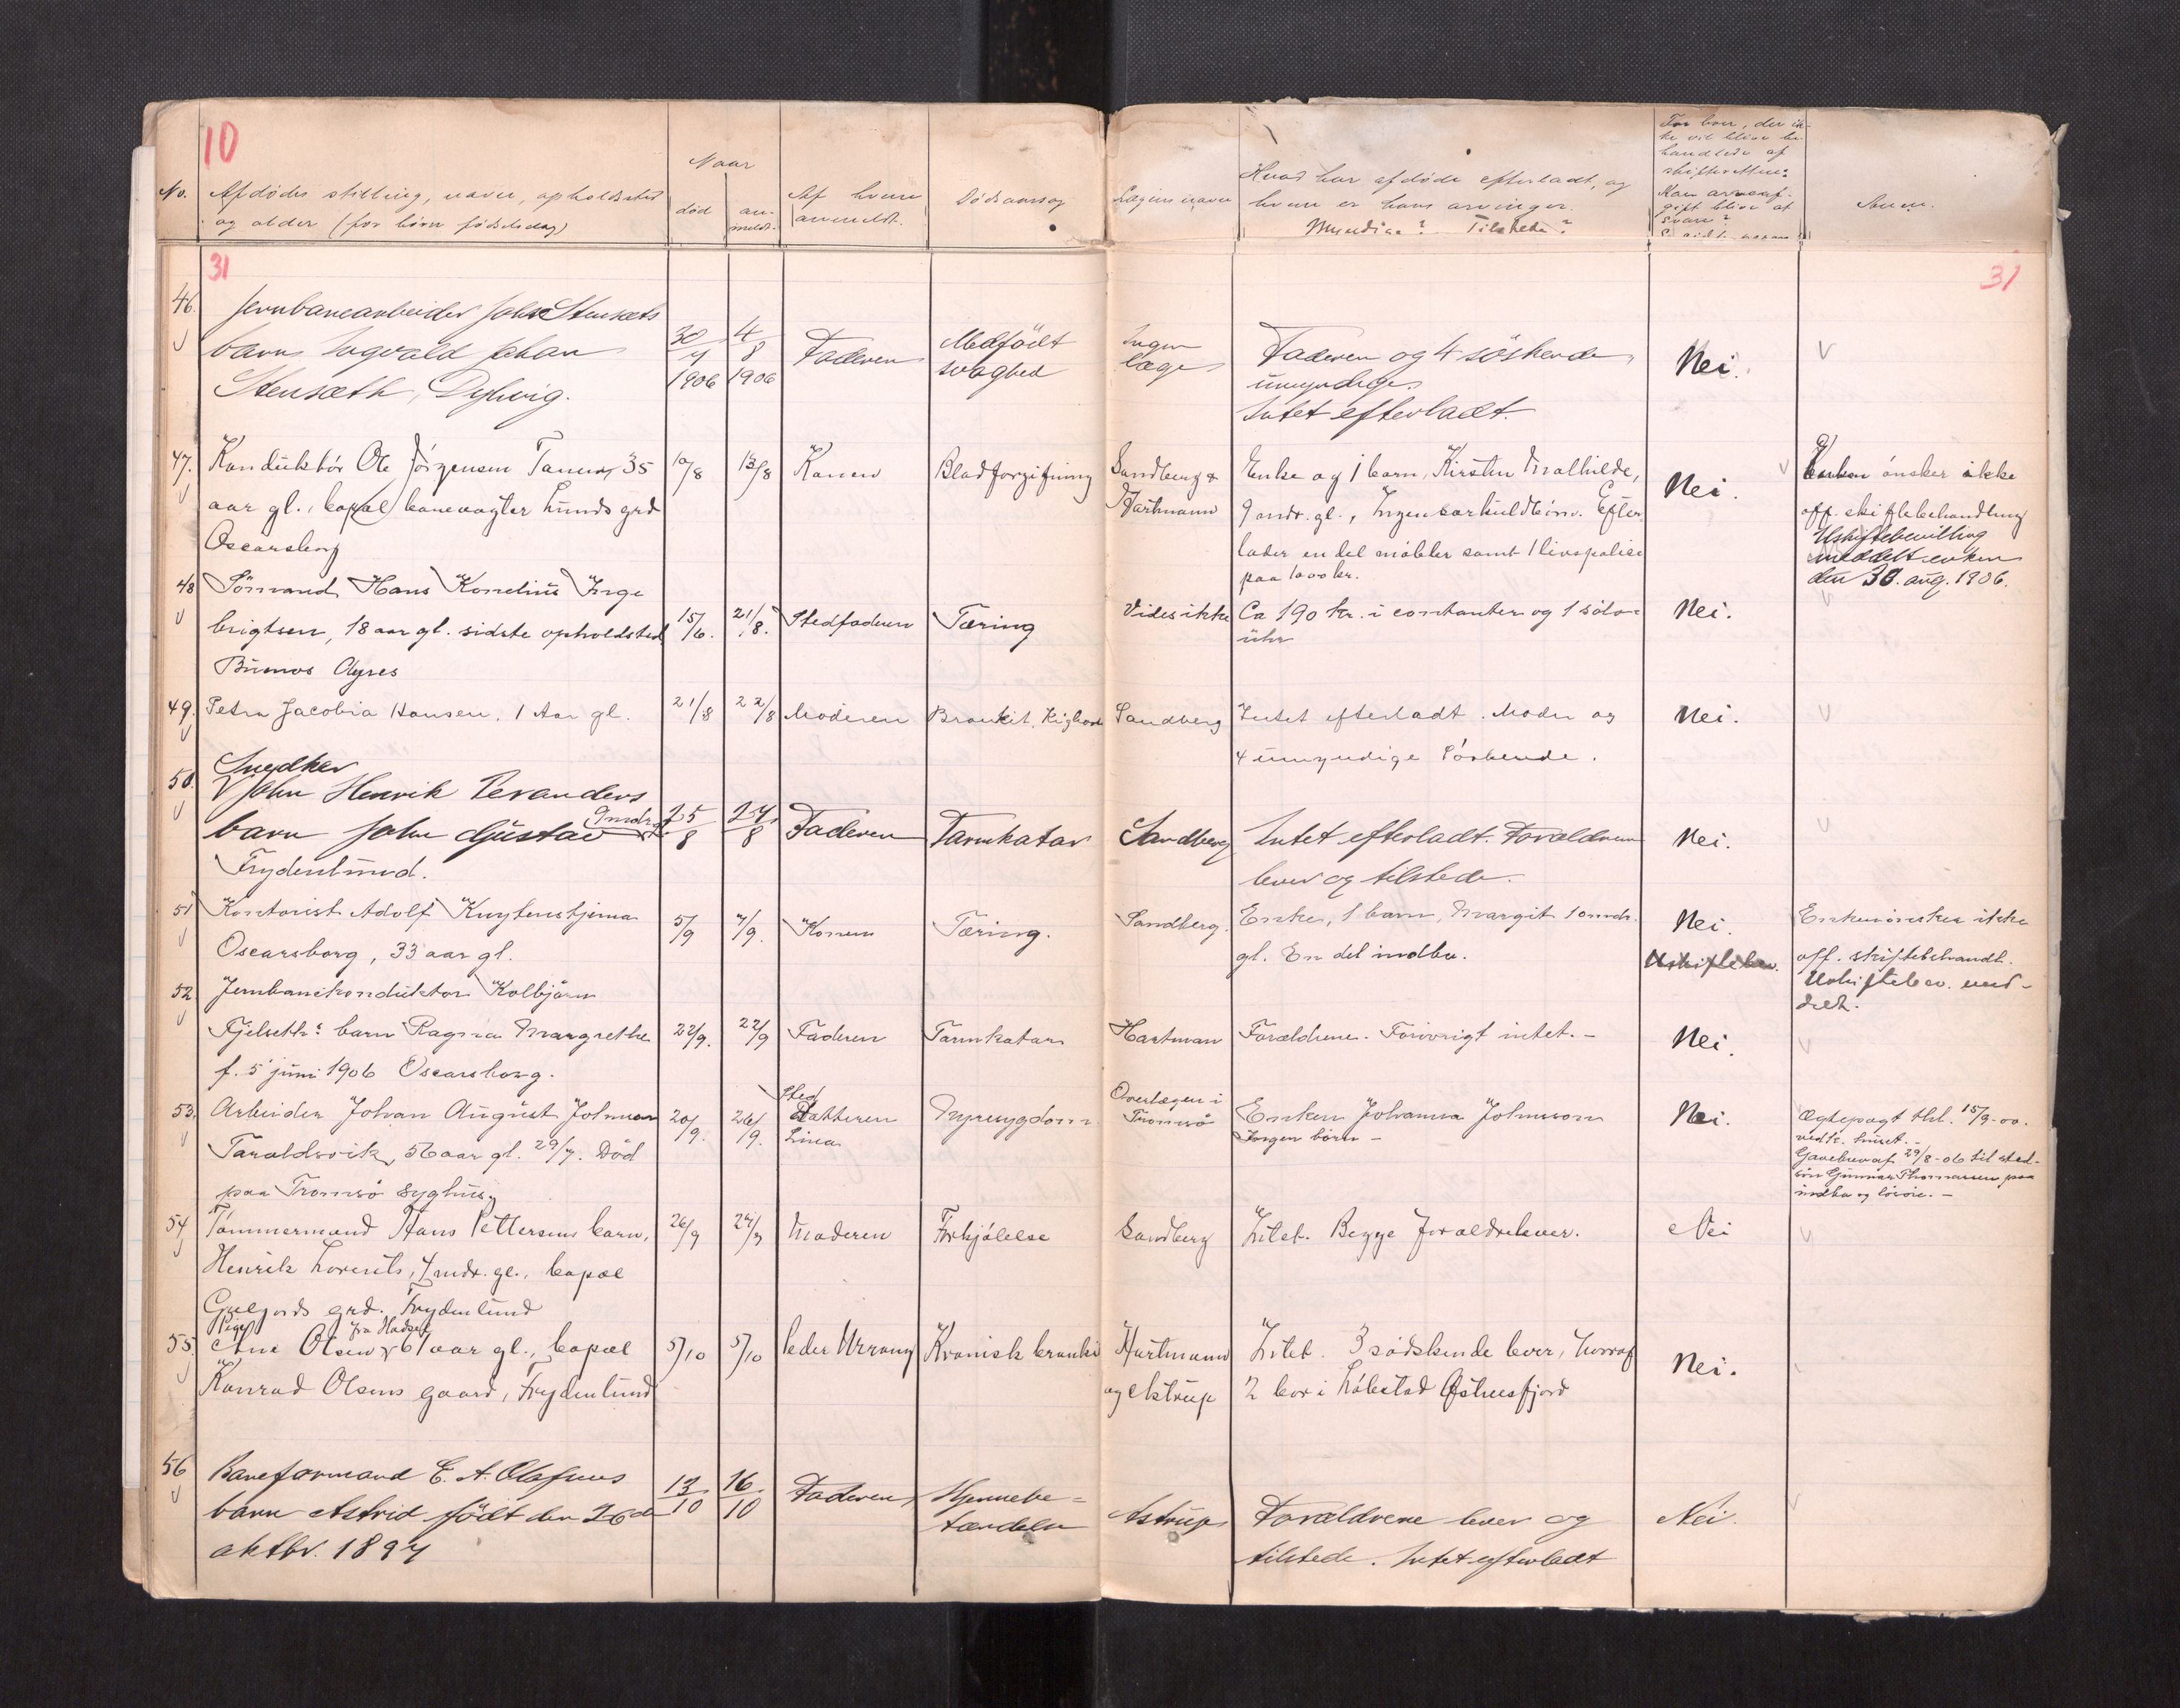 10
No. Afdødes stilling, navn, opholdssted
og alder (for børn fødselsdag)
Naar
død
an-
meldt.
Af hvem
anmeldt.
Dødsaarsag
Lægens navn
Hvad har afdøde efterladt, og
hvem er hans arvinger.
Myndige? Tilstede?
For boer, der ik-
ke vil blive be-
handlede af
skifteretten:
Kan arveaf-
gift blive at
svare?
Anm.
31
31
46.
Jernbanearbeider Johs Stensets
barn Ingvald Johan
Stensæth, Dybvig.
30/7 1906
4/8 1906
Faderen
Medfödt
svaghed
Ingen
læge
Faderen og 4 söskende,
umyndige.
Intet efterladt.
Nei.
47. Konduktör Ole Jörgensen 35
aar gl., bopæl banevogter Lunds grd
Oscarsborg
10/8
13/8
Konen
Blodforgiftning
Sandberg &
Hartmann
Enke og 1 barn, Kirsten Mathilde,
9 mdr. gl., Ingen særkuldbörn. Efter
lader en del möbler samt 1 livspolice
paa 1000 kr.
Nei.
Enken önsker ikke
off. skiftebehandling
Uskiftebevilling
meddelt enken
den 30. aug. 1906.
48 Sömand Hans Kornelius Inge
brigtsen, 18 aar gl. sidste opholdsted
Buenos Ayres
15/6.
21/8.
Stedfaderen
Tæring
Vides ikke
Ca 190 kr. i contanter og 1 sölv-
uhr
Nei.
49. Petra Jacobia Hansen, 1 Aar gl.
21/8
22/8
Moderen
Bronkit. Kighoste
Sandberg
Intet efterladt. Moder og
4 umyndige Söskende.
Nei.
50.
Snedker
John Henrik Tevanders
9 mdr. gl.
barn John Gustav
Frydenlund.
25/8
27/8
Faderen
Tarmkatar
Sandberg
Intet efterladt. Forældrene
lever og tilstede.
Nei.
51 Kontorist Adolf Knytenstjerna
Oscarsborg, 33 aar gl.
5/9
7/9.
Konen
Tæring.
Sandberg.
Enke, 1 barn, Margit 10 mdr.
gl. En del indbo.
Nei.
Uskiftebev.
Enken önsker ikke
off. skiftebehandl.
Uskiftebev. med-
delt.
52 Jernbanekonduktör Kolbjörn
Fjelseths barn Ragna Margrethe
f. 5 juni 1906 Oscarsborg.
22/9.
22/9
Faderen
Tarmkatar
Hartman
Forældrene. Forövrigt intet. -
Nei.
53. Arbeider Johan August Johnson
Taraldsvik, 56 aar gl. 29/7. Död
paa Tromsö Syghus,
20/9.
26/9.
Sted
datteren
Lina
Nyresygdom
Overlægen i
Tromsö
Enken Johanna Johnsson
Ingen börn -
Nei.
Ægtepagt thl. 15/9-00.
vedk. huset. -
Gavebrev af 29/8-06 til sted-
sön Gunnar Thomassen paa
indbo og lösöre. -
54 Tömmermand Hans Pettersens barn,
Henrik Lorents, 7 mdr. gl., bopæl
grd. Frydenlund
26/9
27/9
Moderen
Forkjölelse
Sandberg
Intet. Begge forældre lever.
Nei
Pige
fra Hadsel
55. Ane Olsen 61 aar gl., bopæl
Konrad Olsens gaard, Frydenlund
5/10
5/10
Peder
Kronisk bronki
Hartmann
og Astrup
Intet. 3 södskende lever, hvoraf
2 bor i
Nei.
56 Baneformand E. A. Olafsens
barn Astrid född den 26de
oktbr. 1897
13/10
16/10
Faderen
Hjernebe-
tændelse
Astrup
Forældrene lever og
tilstede. Intet efterladt
Nei.